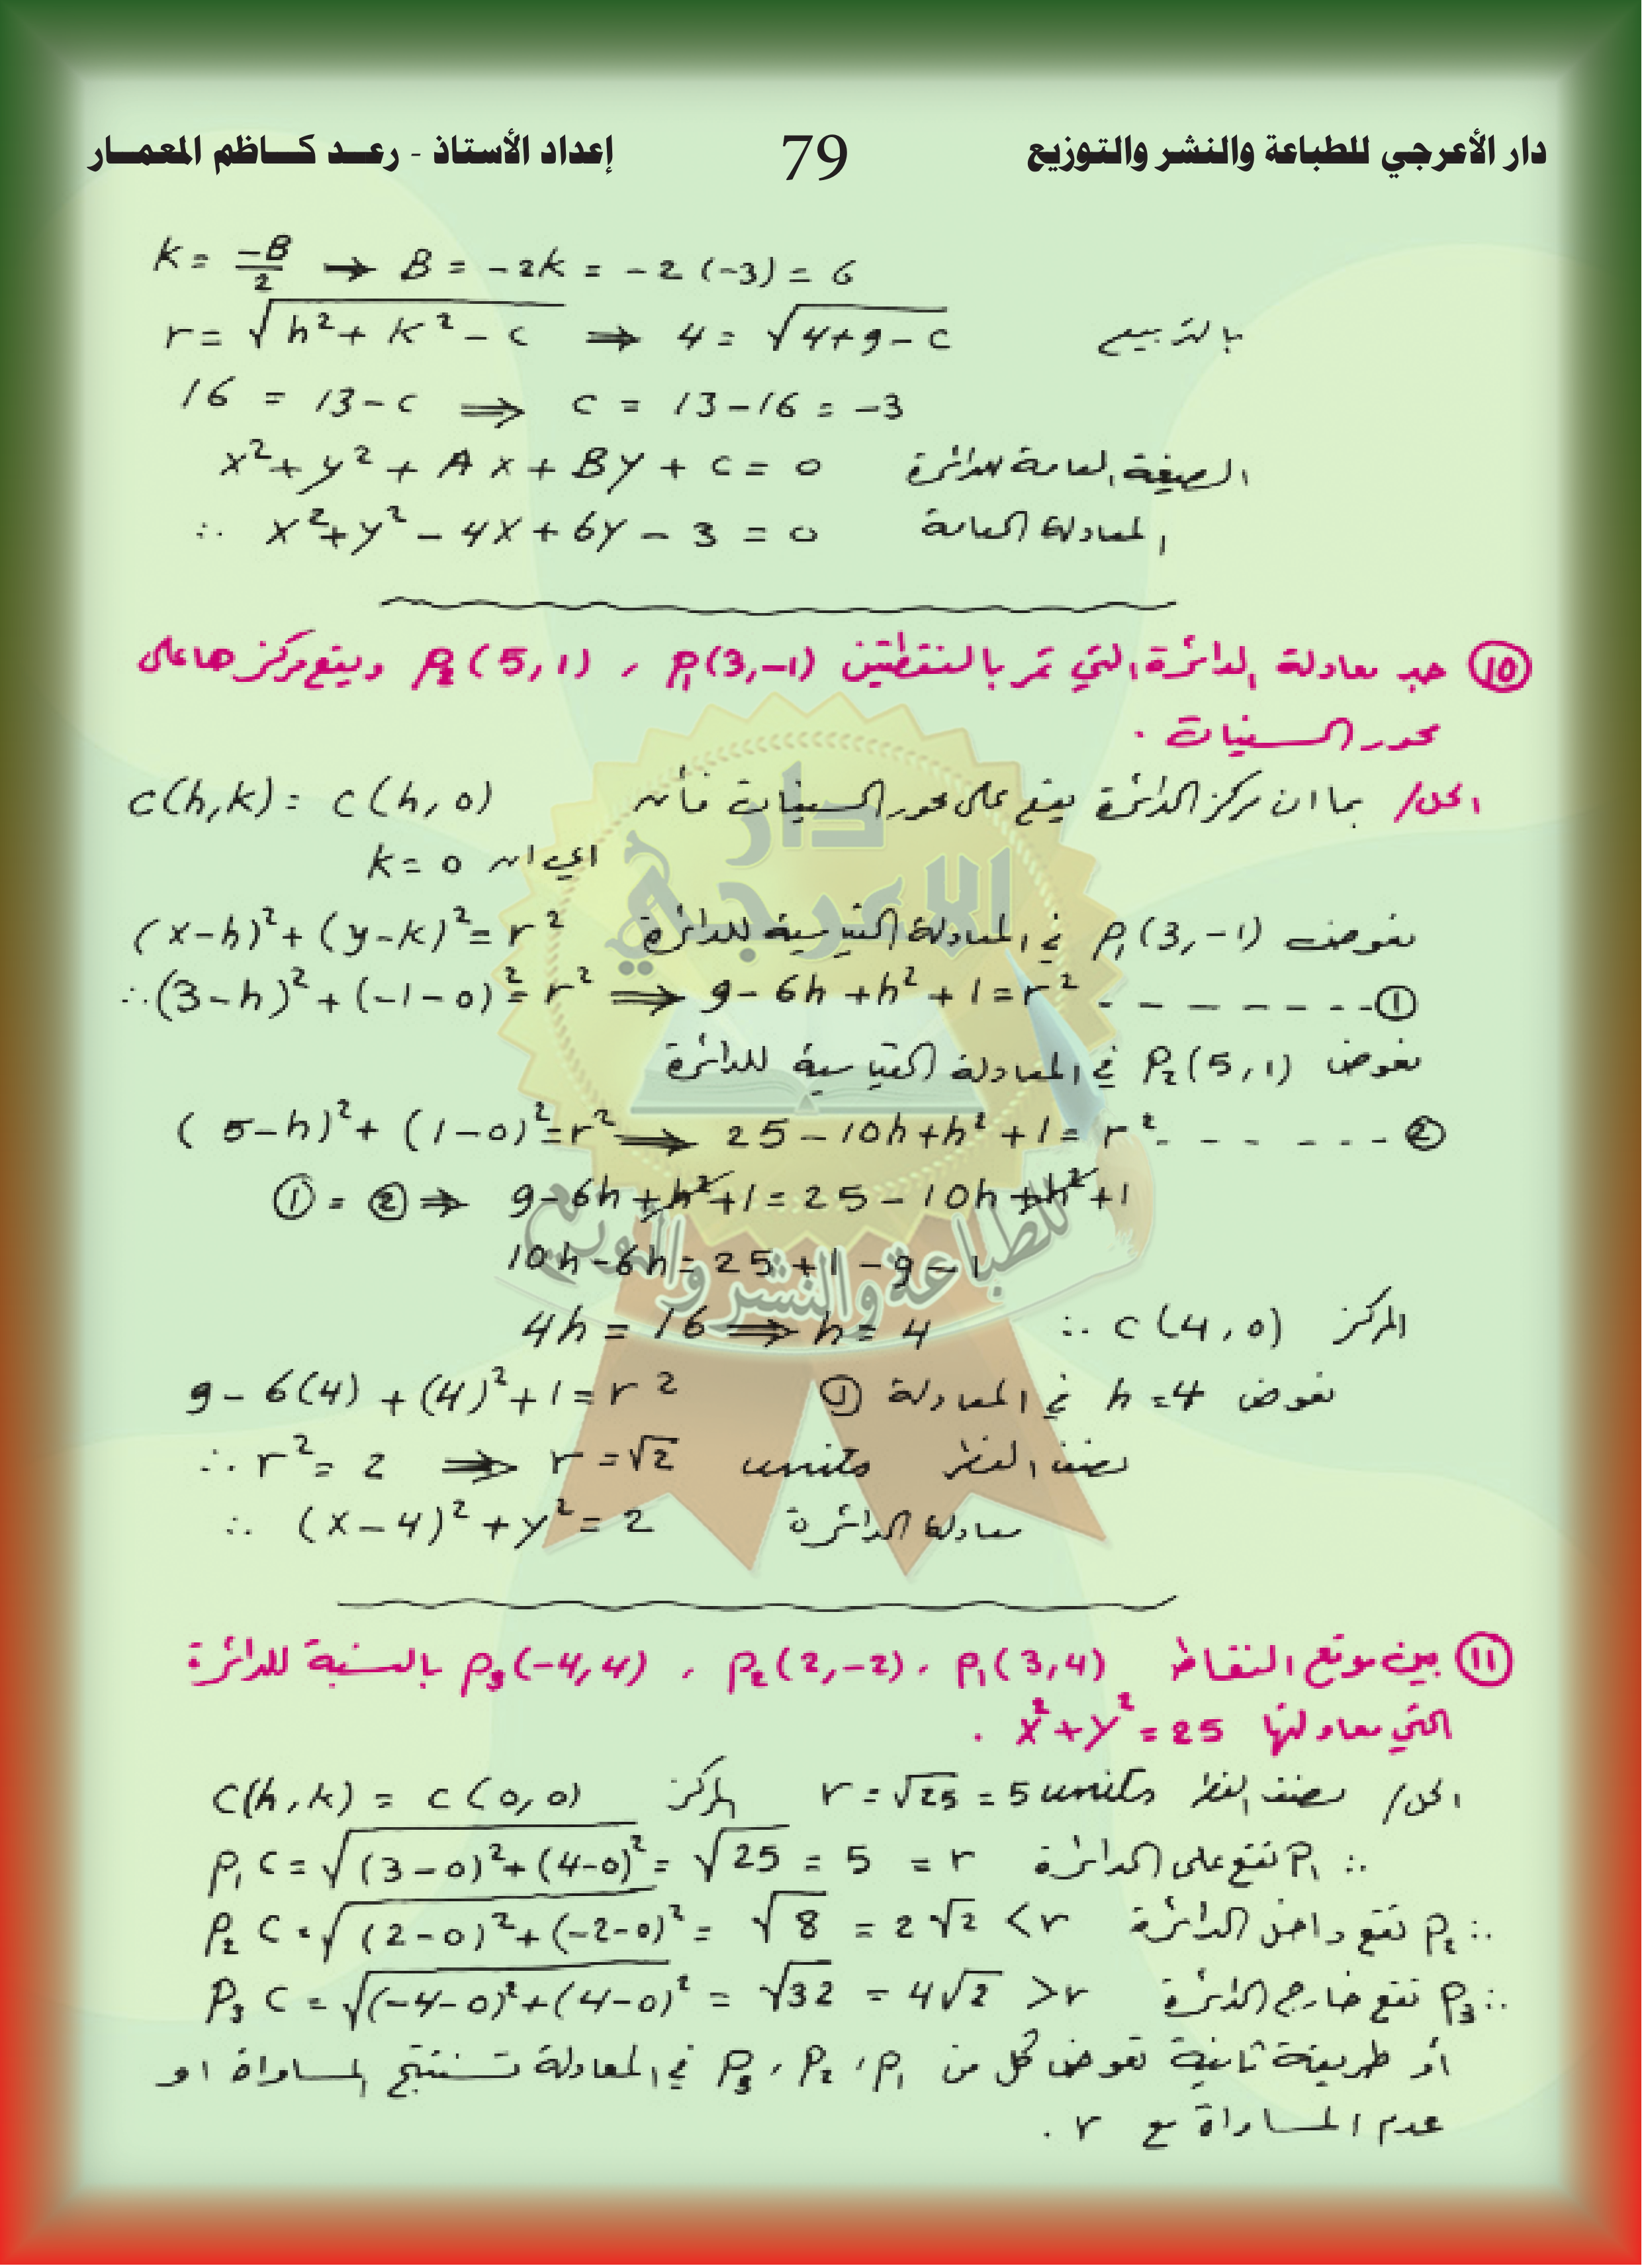 دار الأعرجي للطباعة والنشر والتوزيع 79 إعداد الأستاذ - رعــد كــاظم المعمــار
k = -B/2 → B = -2k = -2(-3) = 6
r = √(h²+k²-c) ⇒ 4 = √(4+9-c) بالتربيع
16 = 13-c ⇒ c = 13-16 = -3
x²+y²+Ax+By+c=0 الصيغة العامة للدائرة
∴ x²+y²-4x+6y-3=0 المعادلة العامة
⑩ جد معادلة الدائرة التي تمر بالنقطتين P₁(3,-1) , P₂(5,1) ويقع مركزها على
محور السينات .
الحل/ بما ان مركز الدائرة يقع على محور السينات فأن C(h,k) = C(h,0)
اي ان k=0
نعوض P₁(3,-1) في المعادلة القياسية للدائرة (x-h)²+(y-k)²=r²
∴(3-h)²+(-1-0)²=r² ⇒ 9-6h+h²+1=r² - - - - - - - ①
نعوض P₂(5,1) في المعادلة القياسية للدائرة
(5-h)²+(1-0)²=r² ⇒ 25-10h+h²+1=r² - - - - - - ②
①=② ⇒ 9-6h+h²+1=25-10h+h²+1
10h-6h=25+1-9-1
4h=16 ⇒ h=4 ∴ C(4,0) المركز
نعوض h=4 في المعادلة ① 9-6(4)+(4)²+1=r²
∴ r²=2 ⇒ r=√2 units نصف القطر
∴ (x-4)²+y²=2 معادلة الدائرة
⑪ بين موقع النقاط P₁(3,4) , P₂(2,-2) , P₃(-4,4) بالنسبة للدائرة
التي معادلتها x²+y²=25 .
الحل/ نصف القطر r=√25=5 units المركز C(h,k)=C(0,0)
P₁C=√((3-0)²+(4-0)²)=√25=5=r ∴ P₁ تقع على الدائرة
P₂C=√((2-0)²+(-2-0)²)=√8=2√2<r ∴ P₂ تقع داخل الدائرة
P₃C=√((-4-0)²+(4-0)²)=√32=4√2>r ∴ P₃ تقع خارج الدائرة
أو طريقة ثانية نعوض كل من P₁ , P₂ , P₃ في المعادلة تستنتج المساواة او
عدم المساواة مع r .
دار
الاعرجي
للطباعة والنشر والتوزيع